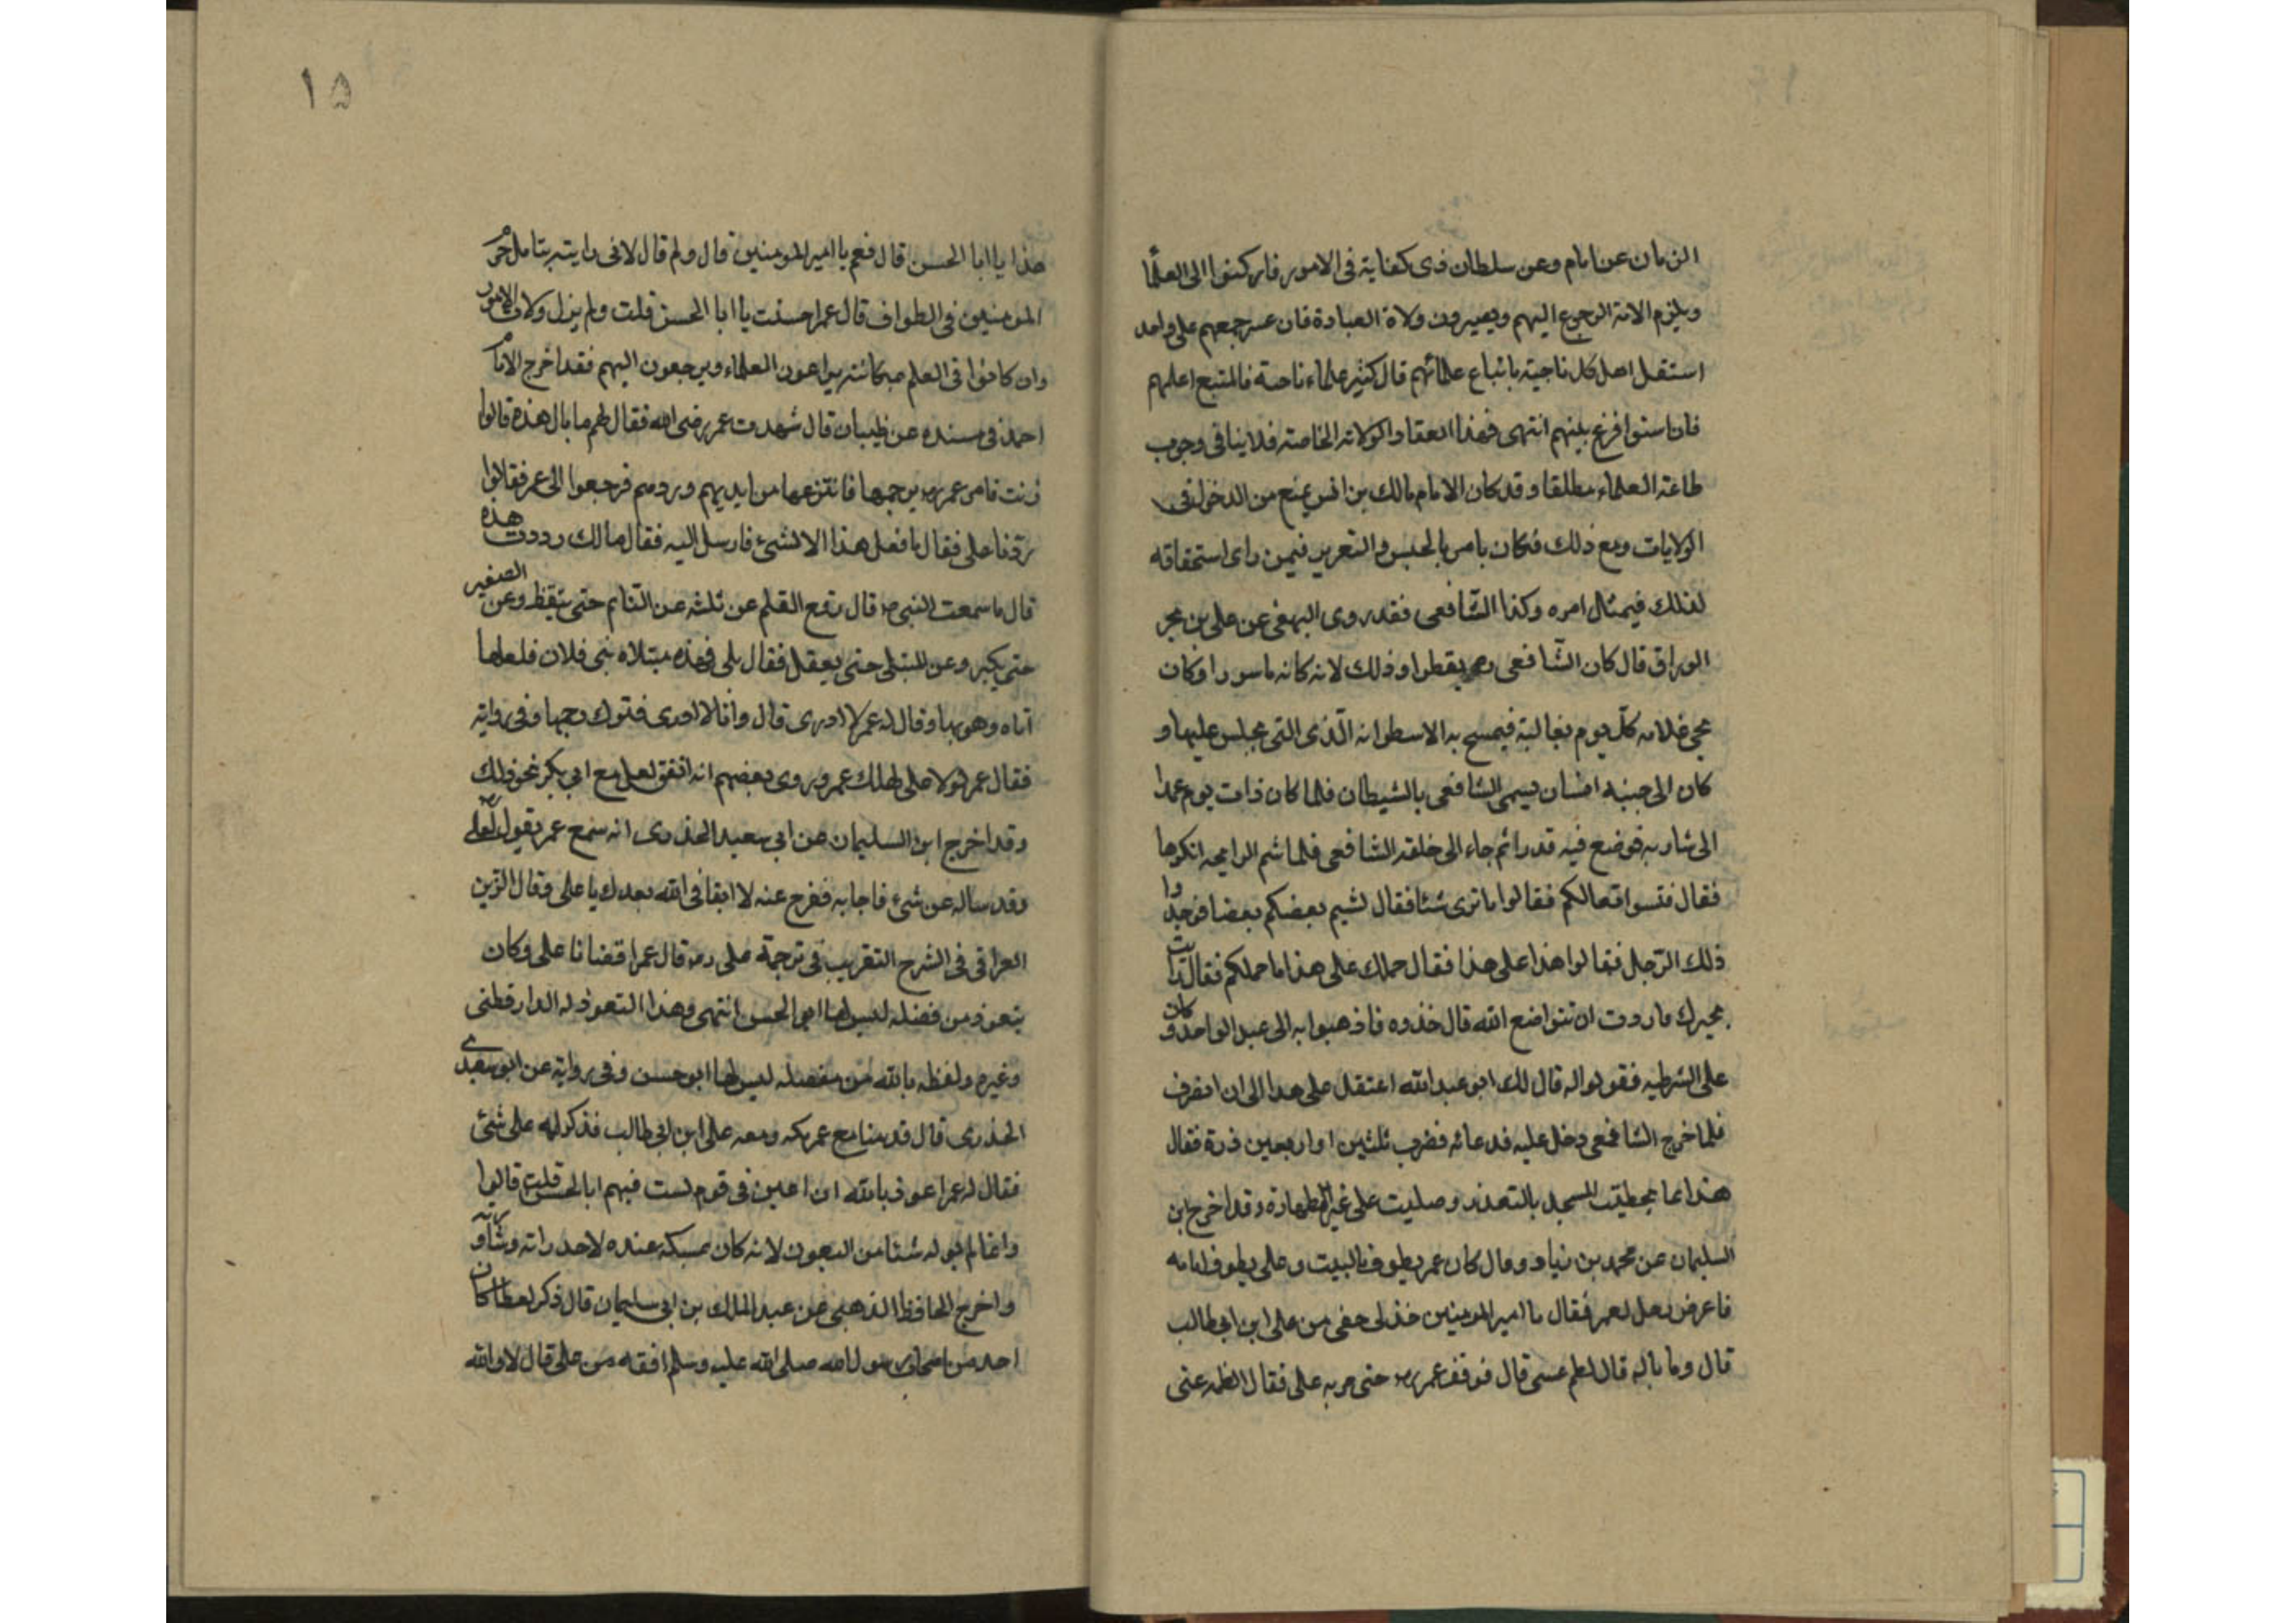 الزمان عن امام وعن سلطان ذى كفاية فى الامور فاركنوا الى العلما
ويلزم الامة الرجوع اليهم ويصيرون ولاة العبادة فان عسر جمعهم على واحد
استقل اهل كل ناحية باتباع علمائهم قال كثير علماء ناحية فالمتبع اعلمهم
فان استوا فرع بينهم انتهى فهذا انعقاد الولاته الخاصته فلا ينافى وجوب
طاعته العلماء مطلقا وقد كان الامام مالك بن انس يمنع من الدخول فى
الولايات ومع ذلك فكان يامر بالحبس والتعزير فيمن راى استحقاقه
لذلك فيمثال امره وكذا الشافعى فقد روى البيهقى عن على بن بحر
الوراق قال كان الشافعى وذلك لانه كانه ماسورا وكان
يجى غلامه كل يوم بغالية فيمسح به الاسطوانه الذى التى يجلس عليها و
كان الى جنبه انسان يسمى الشافعى بالشيطان فلما كان ذات يوم عمدا
الى شاربه فوضع فيه قدرا ثم جاء الى خلقه الشافعى فلما شم الرايحه انكرها
فقال فتسوا نعالكم فقالوا ما نرى شئا فقال لشيم بعضكم بعضا فوجدوا
ذلك الرجل فقالوا هذا على هذا فقال حملك على هذا ما حملكم فقال رايت
مجيرك فاردت ان تتواضع الله قال خذوه فاذهبوا به الى عبد الواحد وكان
على الشرطيه فقولوا له قال لك ابو عبد الله اعتقل على هدا الى ان انصرف
فلما خرج الشافعى دخل عليه فدعا ئه فضرب ثلثين او اربعين درة فقال
هذا انما المسجد بالتعذر وصليت على غير الطهارة وقد اخرج ابن
السليمان عن محمد بن زياد وقال كان عمر يطوف بالبيت وعلى يطوف امامه
فاعرض رجل لعمر فقال يا امير المومنين خذلى حقى من على ابن ابى طالب
قال وما باله قال لطم عينى قال فوقف عمر رض حتى مر به على فقال الطمه عنى
١٥
هذا يا ابا الحسن قال فعم يا امير المومنين قال ولم قال لانى رايته يتامل حرم
المومنين فى الطواف قال عمر احسنت يا ابا الحسن قلت ولم يزل ولاة الامور
وان كانوا فى العلم بمكانته يراعون العلماء ويرجعون اليهم فقد اخرج الامام
احمد فى مسنده عن ظبيان قال شهدت عمر رضى الله فقال لهم ما بال هذه قالوا
زنت فامر عمر رض برجمها فانتزعها من ايديهم وردهم فرجعوا الى عمر فقالوا
ردنا على فقال ما فعل هذا الا لشئ فارسل اليه فقال مالك رددت هذه
قال ما سمعت النبى ص قال رفع القلم عن ثلثه عن النائم حتى يتيقظ وعن الصغير
حتى يكبر وعن المبتلى حتى يعقل فقال بلى فهذه مبتلاه بنى فلان فلعلها
اتاه وهو بها وقال له عمر لا ادرى قال وانا لا ادرى فتوك رجمها وفى روايته
فقال عمر لولا على لهلك عمر وروى بعضهم انه اتفق لعلى مع ابى بكر نحو ذلك
وقد اخرج ابن السليمان عن ابى سعيد الخذرى انه سمع عمر يقول لعلى
وقد ساله عن شئ فاجابه ففرج عنه لا ابقانى الله بعدك يا على وقال الزين
العراقى فى الشرح التقريب فى ترجمة على رض قال عمر اقضانا على وكان
يتعوذ من فضله ليس لها ابو الحسن انتهى وهذا التعوذ له الدارقطنى
وغيره ولفظه بالله من مفصله ليس لها ابو حسن وفى روايته عن ابو سعيد
الخذرى قال قدمنا مع عمر مكه ومعه على ابن ابى طالب فذكر له على شئ
فقال له عمر اعوذ بالله ان اعيش فى قوم لست فيهم ابا الحسن قلت قالوا
وانما لم يوله شئا من البعوث لانه كان يمسكه عنده لاحد راته وشاوره
واخرج الحافظ الذهبى عن عبد الملك بن ابى سليمان قال ذكر لعطا كان
احد من اصحاب رسول الله صلى الله عليه وسلم افقه من على قال لا والله